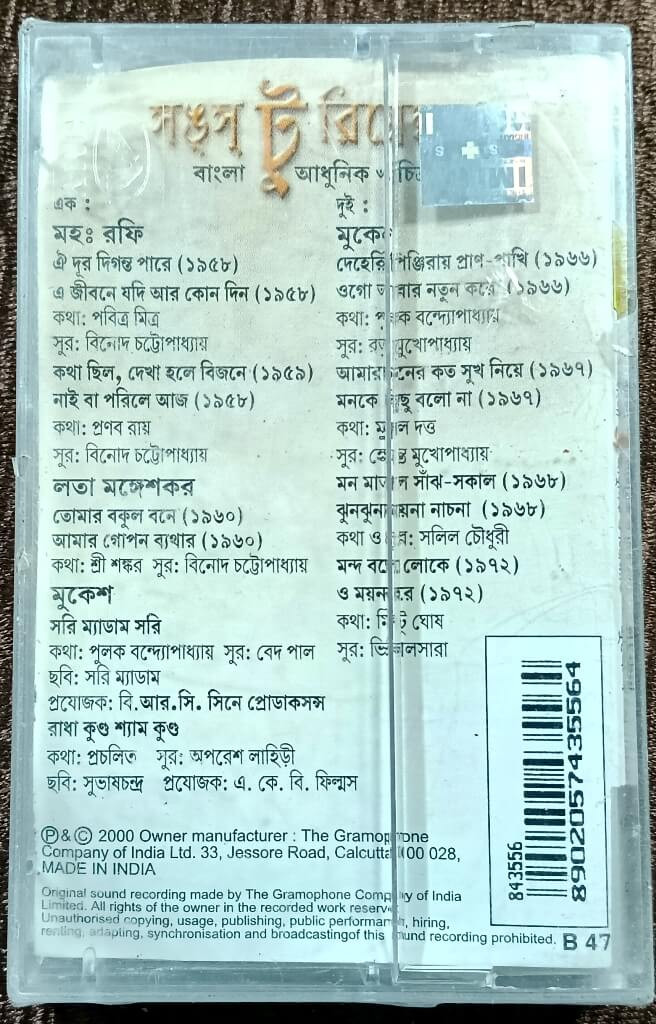 সঙস্ টু
বাংলা আধুনিক ও
এক :
মহঃ রফি
ঐ দূর দিগন্ত পারে (১৯৫৮)
এ জীবনে যদি আর কোন দিন (১৯৫৮)
কথা: পবিত্র মিত্র
সুর: বিনোদ চট্টোপাধ্যায়
কথা ছিল, দেখা হলে বিজনে (১৯৫৯)
নাই বা পরিলে আজ (১৯৫৮)
কথা: প্রণব রায়
সুর: বিনোদ চট্টোপাধ্যায়
লতা মঙ্গেশকর
তোমার বকুল বনে (১৯৬০)
আমার গোপন ব্যথার (১৯৬০)
কথা: শ্রী শঙ্কর সুর: বিনোদ চট্টোপাধ্যায়
মুকেশ
সরি ম্যাডাম সরি
কথা: পুলক বন্দ্যোপাধ্যায় সুর: বেদ পাল
ছবি: সরি ম্যাডাম
প্রযোজক: বি.আর.সি. সিনে প্রোডাকসন্স
রাধা কুণ্ড শ্যাম কুণ্ড
কথা: প্রচলিত সুর: অপরেশ লাহিড়ী
ছবি: সুভাষচন্দ্র প্রযোজক: এ. কে. বি. ফিল্মস
দুই :
দেহেরি পিঞ্জিরায় প্রাণ-পাখি (১৯৬৬)
ওগো আবার নতুন করে (১৯৬৬)
কথা: পুলক বন্দ্যোপাধ্যায়
সুর: মুখোপাধ্যায়
আমার মনের কত সুখ নিয়ে (১৯৬৭)
মনকে কিছু বলো না (১৯৬৭)
কথা: দত্ত
সুর: মুখোপাধ্যায়
মন মাতাল সাঁঝ-সকাল (১৯৬৮)
ঝুনঝুনা ময়না নাচনা (১৯৬৮)
কথা ও সুর: সলিল চৌধুরী
মন্দ বলে লোকে (১৯৭২)
ও (১৯৭২)
কথা: মিল্টু ঘোষ
সুর: ভি বালসারা
843556
8902057435564
Ⓟ & © 2000 Owner manufacturer : The Gramophone
Company of India Ltd. 33, Jessore Road, Calcutta 700 028,
MADE IN INDIA
Original sound recording made by The Gramophone Company of India
Limited. All rights of the owner in the recorded work reserved.
Unauthorised copying, usage, publishing, public performance, hiring,
renting, adapting, synchronisation and broadcastingof this sound recording prohibited. B 47